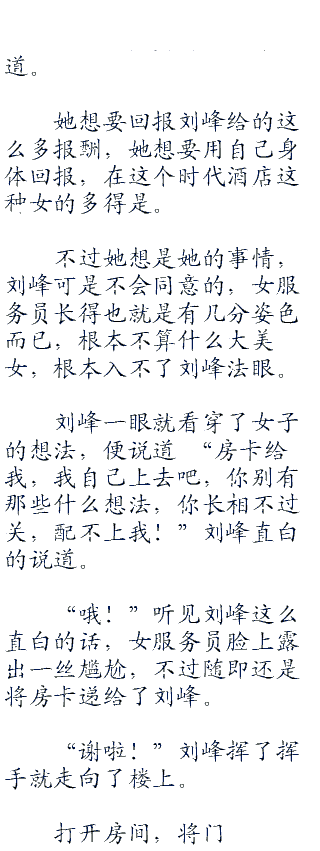 道。
她想要回报刘峰给的这
么多报酬，她想要用自己身
体回报，在这个时代酒店这
种女的多得是。
不过她想是她的事情，
刘峰可是不会同意的，女服
务员长得也就是有几分姿色
而已，根本不算什么大美
女，根本入不了刘峰法眼。
刘峰一眼就看穿了女子
的想法，便说道 “房卡给
我，我自己上去吧，你别有
那些什么想法，你长相不过
关，配不上我！”刘峰直白
的说道。
“哦！”听见刘峰这么
直白的话，女服务员脸上露
出一丝尴尬，不过随即还是
将房卡递给了刘峰。
“谢啦！”刘峰挥了挥
手就走向了楼上。
打开房间，将门